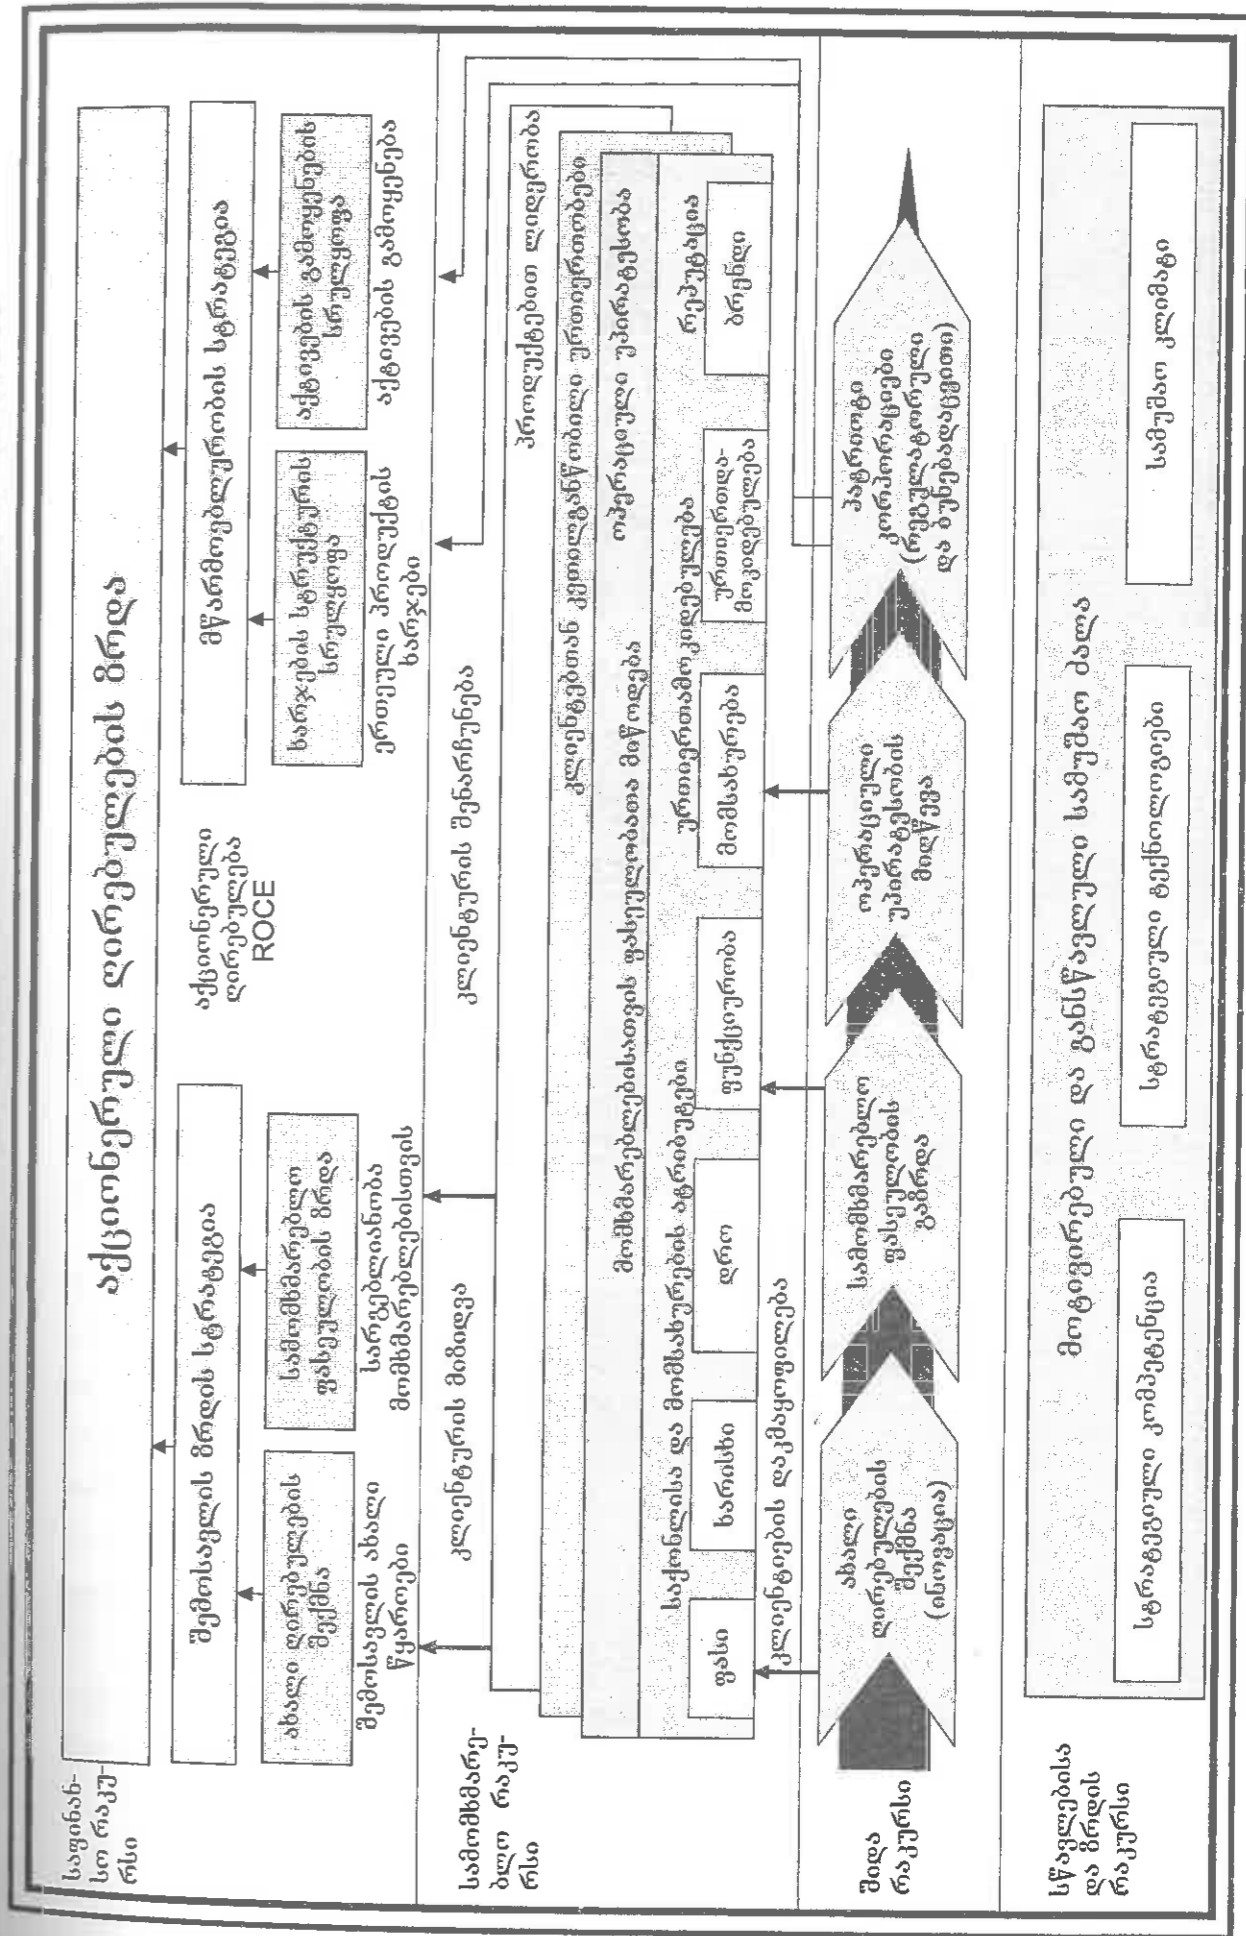 საფინან-
სო რაკუ-
რსი
აქციონერული ღირებულების ზრდა
შემოსავლის ზრდის სტრატეგია
აქციონერული
ღირებულება
ROCE
მწარმოებლურობის სტრატეგია
ახალი ღირებულების
შექმნა
სამომხმარებლო
ფასეულობის ზრდა
ხარჯების სტრუქტურის
სრულყოფა
აქტივების გამოყენების
სრულყოფა
შემოსავლის ახალი
წყაროები
სარგებლიანობა
მომხმარებლებისთვის
ერთეული პროდუქტის
ხარჯები
აქტივების გამოყენება
სამომხმარე-
ბლო რაკუ-
რსი
კლიენტურის მიზიდვა
კლიენტურის შენარჩუნება
პროდუქტებით ლიდერობა
კლიენტებთან კეთილგანწყობილი ურთიერთობები
ოპერაციული უპირატესობა
მომხმარებლებისათვის ფასეულობათა მიწოდება
საქონლისა და მომსახურების ატრიბუტები
ურთიერთამოკიდებულება
რეპუტაცია
ფასი
ხარისხი
დრო
ფუნქციურობა
მომსახურება
ურთიერთდა-
მოკიდებულება
ბრენდი
კლიენტების დაკმაყოფილება
შიდა
რაკურსი
ახალი
ღირებულების
შექმნა
(ინოვაცია)
სამომხმარებლო
ფასეულობის
გაზრდა
ოპერაციული
უპირატესობის
მიღწევა
პატრიოტი
კორპორაციები
(რეგულატორული
და ბუნებადაცვითი)
სწავლებისა
და ზრდის
რაკურსი
მოტივირებული და განსწავლული სამუშაო ძალა
სტრატეგიული კომპეტენცია
სტრატეგიული ტექნოლოგიები
სამუშაო კლიმატი